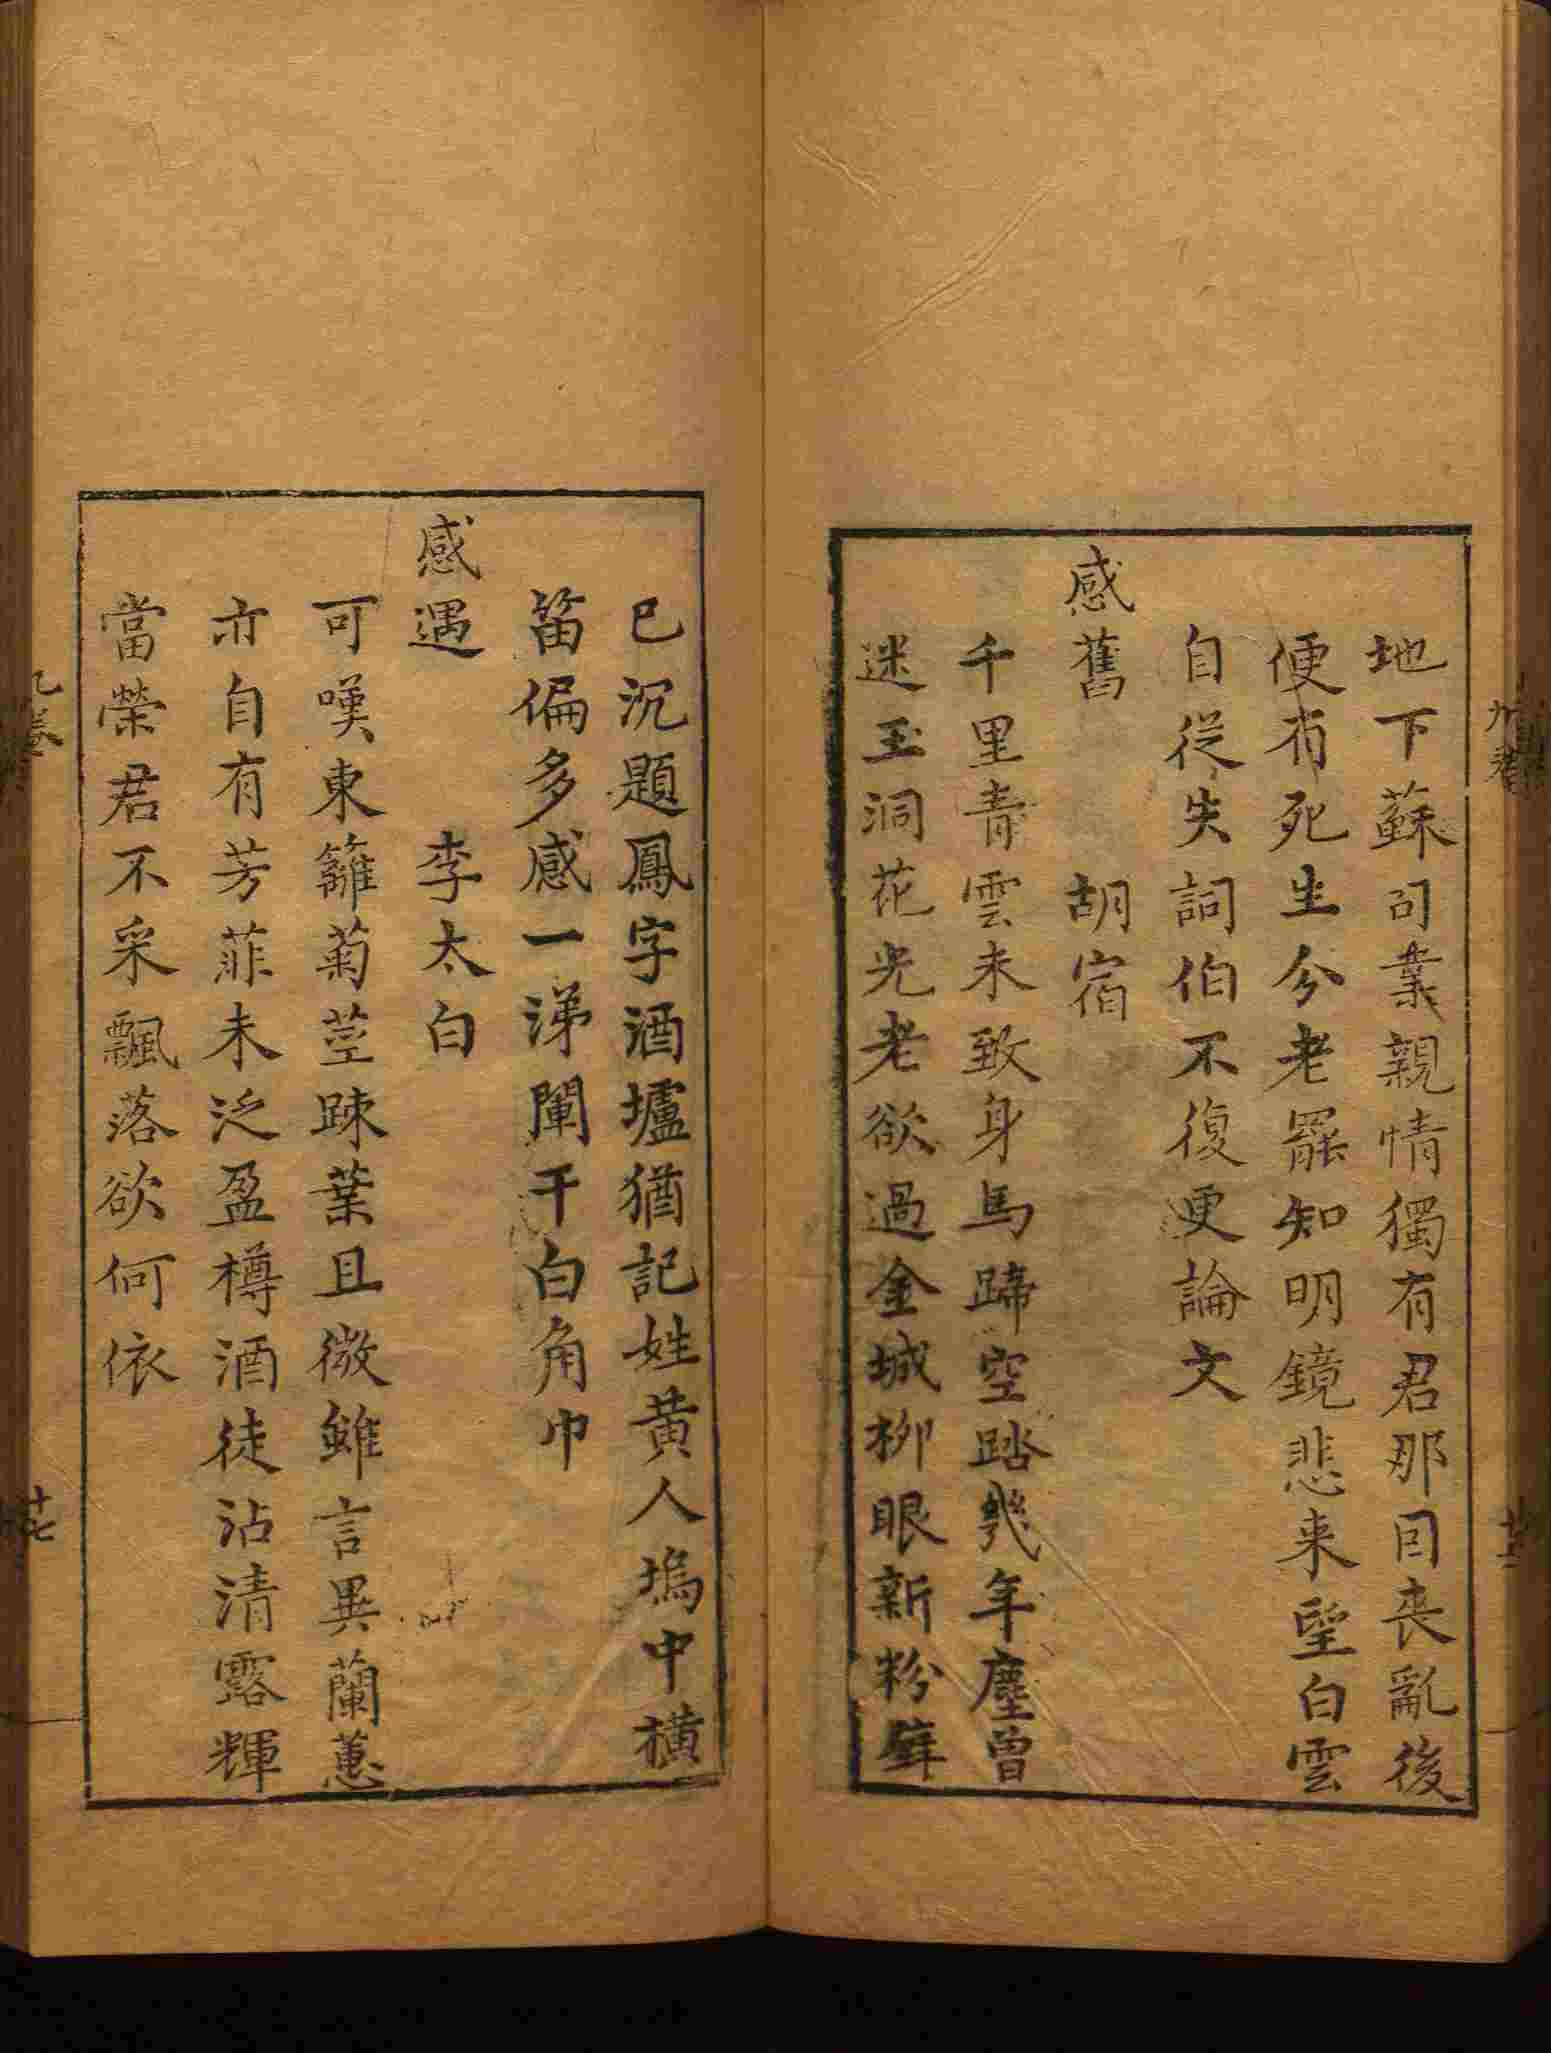 地下蘇司業親情獨有君那因丧亂後
便有死生分老罷知明鏡悲来望白雲
自從失詞伯不復更論文
感舊　胡宿
千里青雲未致身馬蹄空踏幾年塵曽
迷玉洞花光老欲過金城栁眼新粉壁
已沉題鳳字酒壚猶記姓黄人塢中横
笛偏多感一涕闌干白角巾
感遇　李太白
可嘆東籬菊莖踈葉且微雖言異蘭蕙
亦自有芳菲未泛盈樽酒徒沾清露輝
當榮君不采飄落欲何依
九卷
十七